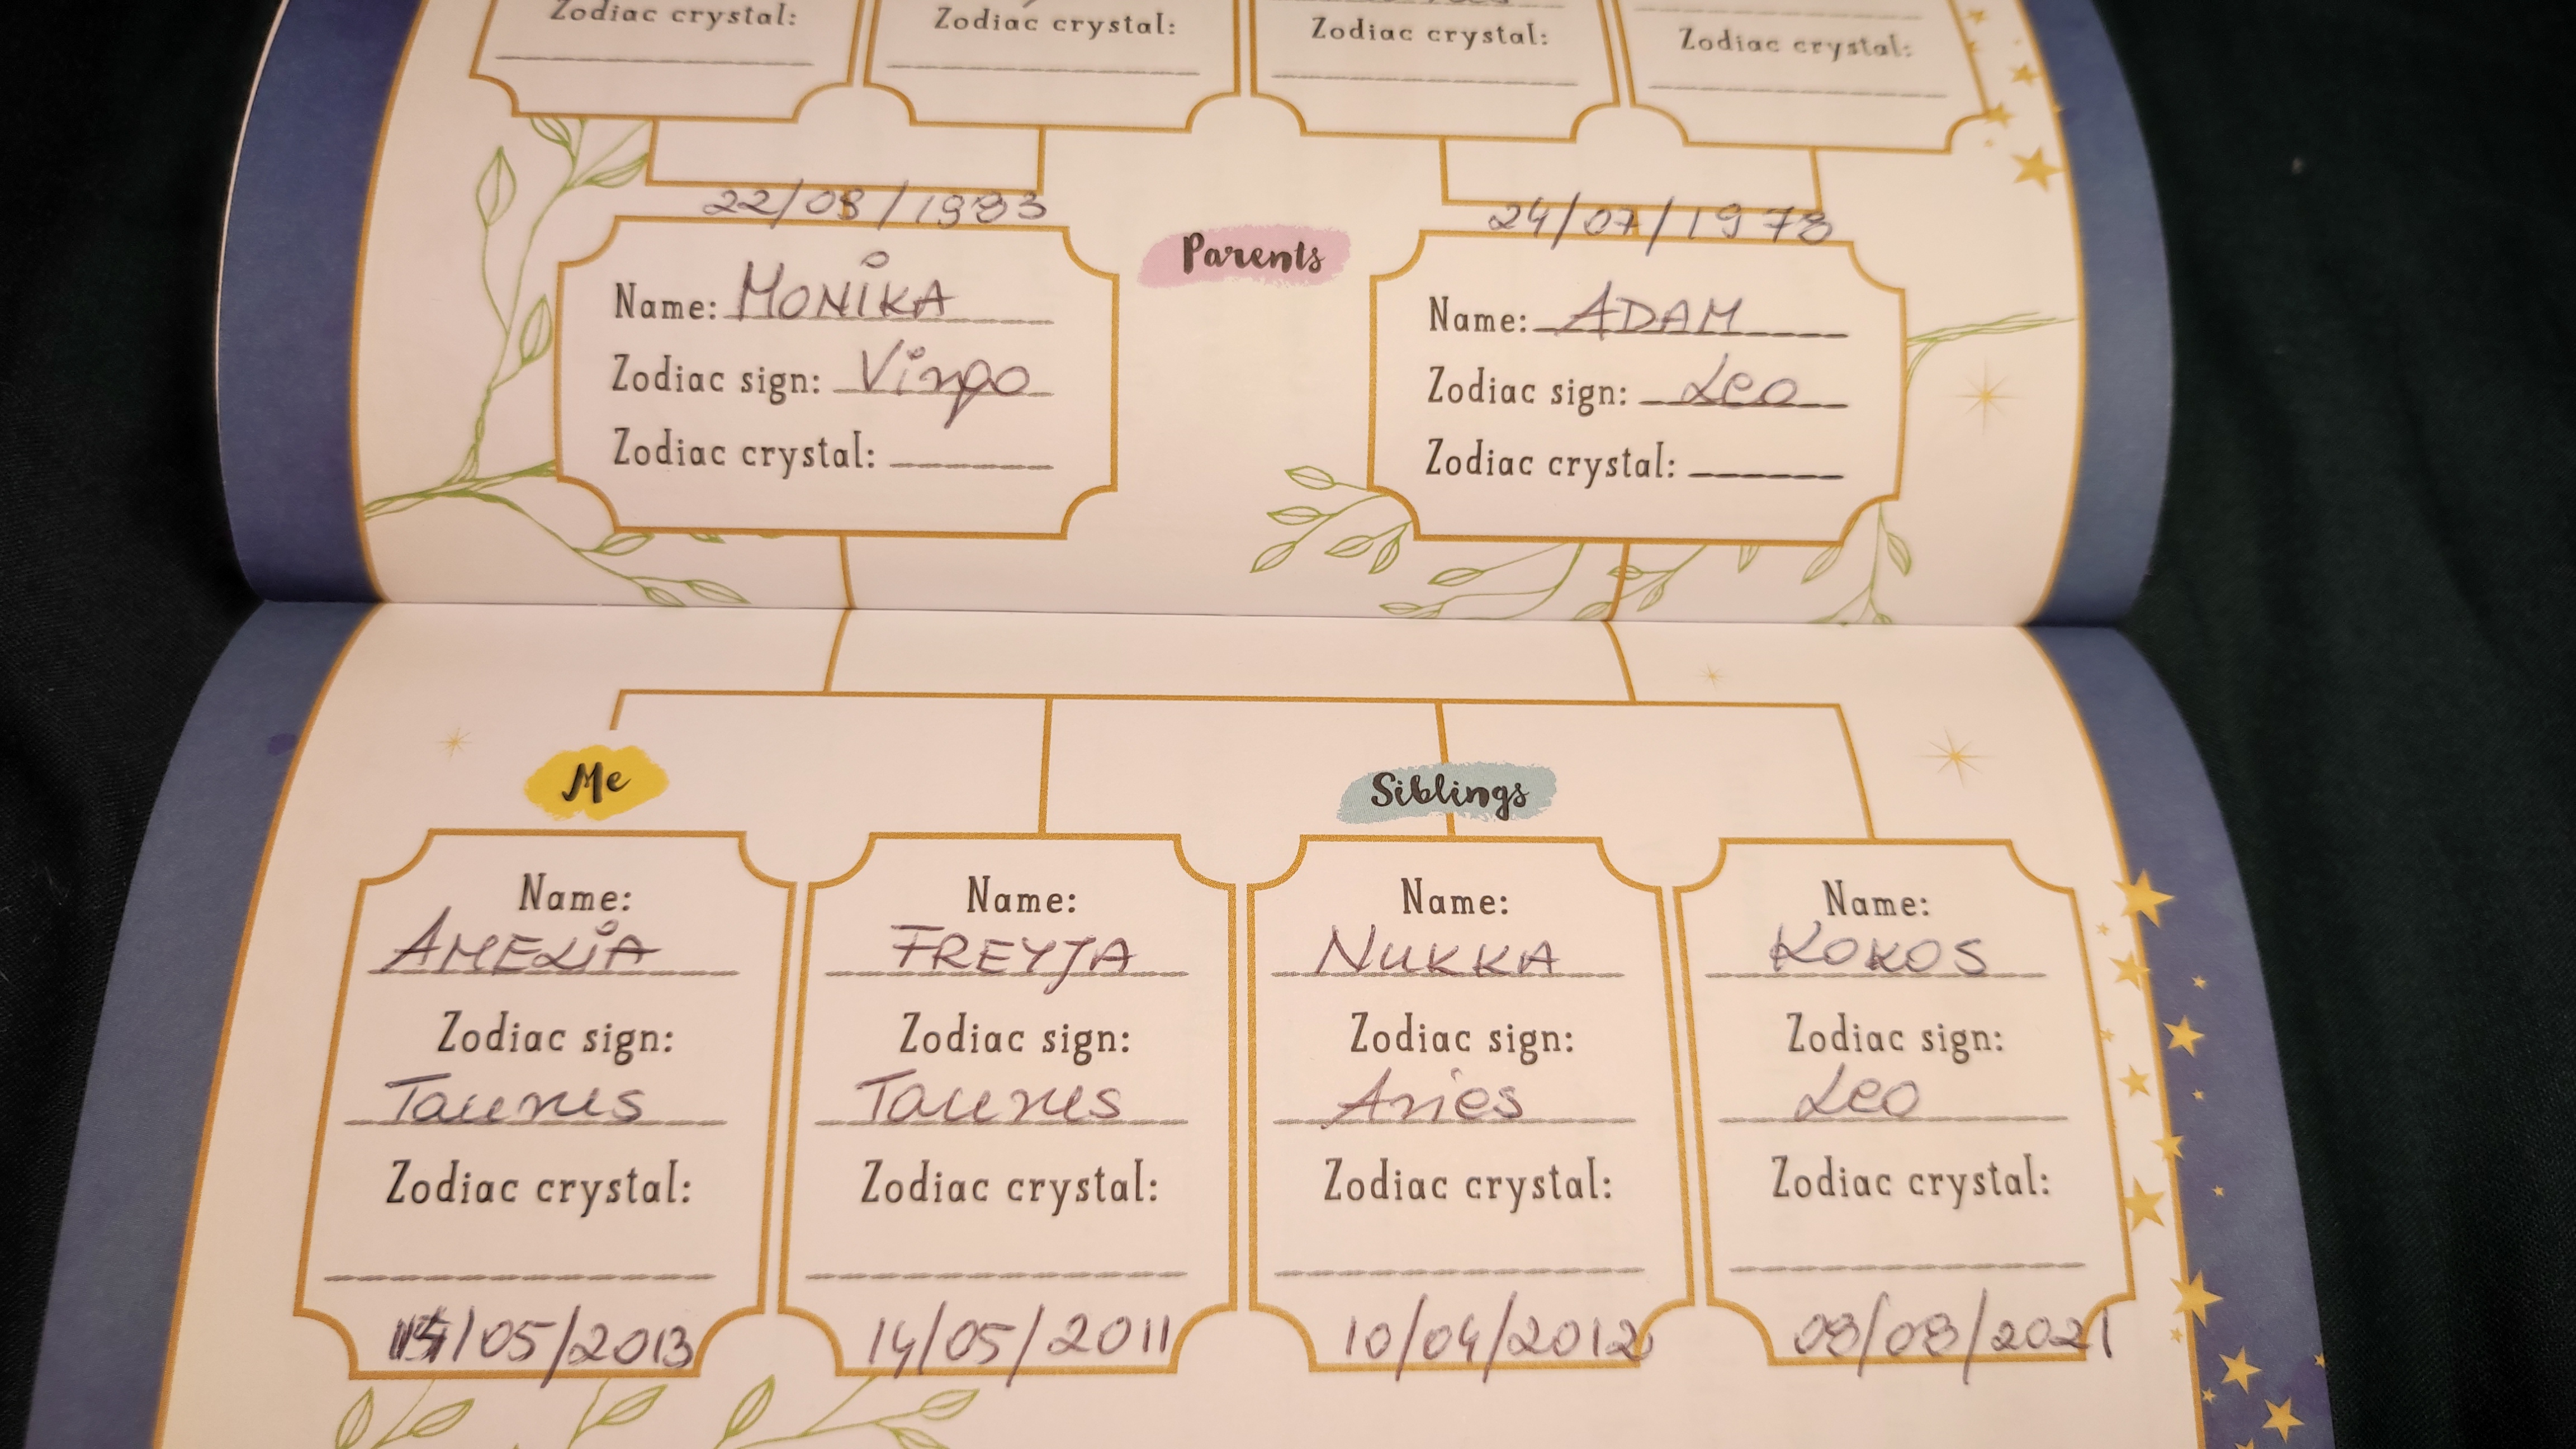 Zodiac crystal:
Zodiac crystal:
Zodiac crystal:
Zodiac crystal:
22/08/1983
24/07/1978
Parents
Name: MONIKA
Zodiac sign: Virgo
Zodiac crystal:
Name: ADAM
Zodiac sign: Leo
Zodiac crystal:
Me
Siblings
Name:
AMELIA
Zodiac sign:
Taurus
Zodiac crystal:
/05/2013
Name:
FREYJA
Zodiac sign:
Taurus
Zodiac crystal:
14/05/2011
Name:
NUKKA
Zodiac sign:
Aries
Zodiac crystal:
10/04/2012
Name:
KOKOS
Zodiac sign:
Leo
Zodiac crystal:
08/08/2021